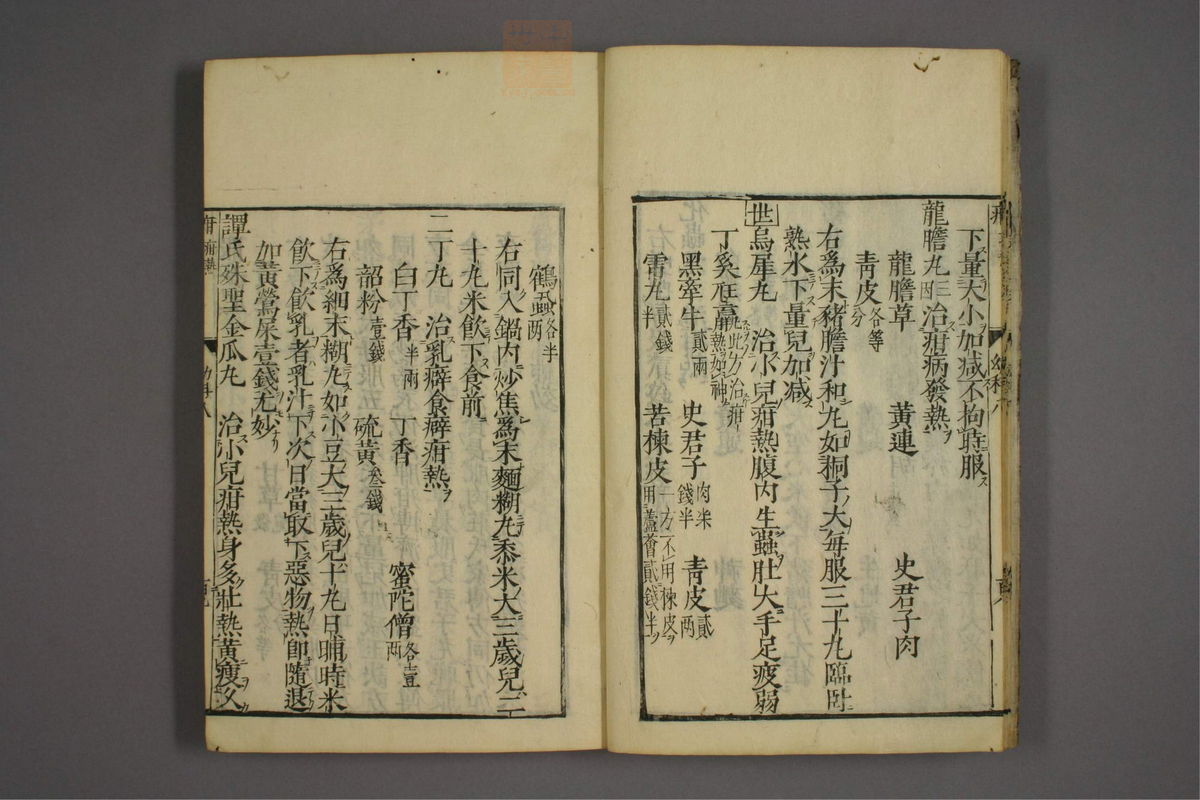 下量大小加減不拘時服
龍膽丸三因治疳病發熱
龍膽草 黃連 史君子肉
青皮各等分
右爲末豬膽汁和丸如桐子大毎服三十丸臨卧
熟水下量兒加減
世烏犀丸 治小兒疳熱腹内生蟲肚大手足疲弱
丁奚尫羸此方治疳熱如神
黑牽牛貳兩 史君子肉米錢半 青皮貳兩
雷丸貳錢半 苦楝皮一方不用楝皮用蘆薈貳錢半
鶴蝨各半兩
右同入鍋内炒焦爲末麵糊丸黍米大三歲兒二
十丸米飮下食前
二丁丸 治乳癖食癖疳熱
白丁香半兩 丁香 蜜陀僧各壹兩
韶粉壹錢 硫黃叁錢
右爲細末糊丸如小豆大三歲兒十丸日晡時米
飮下飮乳者乳汁下次日當取下惡物熱即隨退
如黃鶯屎壹錢尤妙
譚氏殊聖金瓜丸 治小兒疳熱身多壯熱黃瘦久